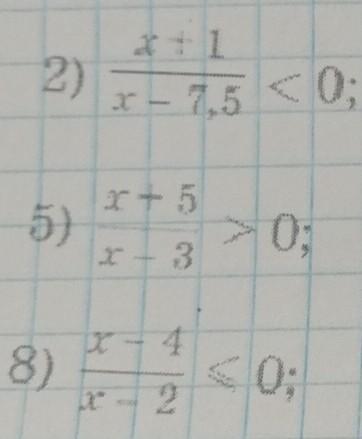 2) \frac{x + 1}{x - 7,5} < 0;
5) \frac{x + 5}{x - 3} > 0;
8) \frac{x - 4}{x - 2} ⩽ 0;